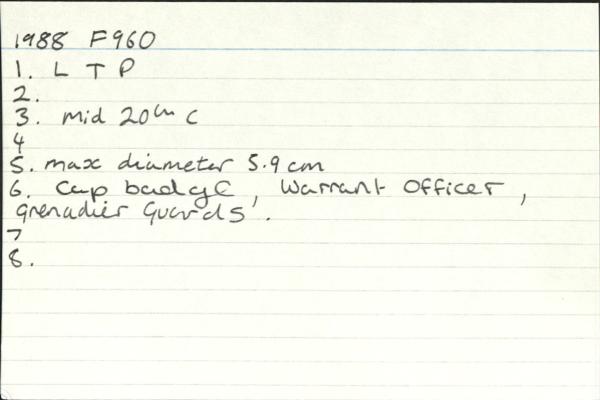 1988 F960
1. L T P
2.
3. Mid 20th C
4
5. max diameter 5.9 cm
6. Cap badge, Warrant Officer,
Grenadier Guards.
7
8.